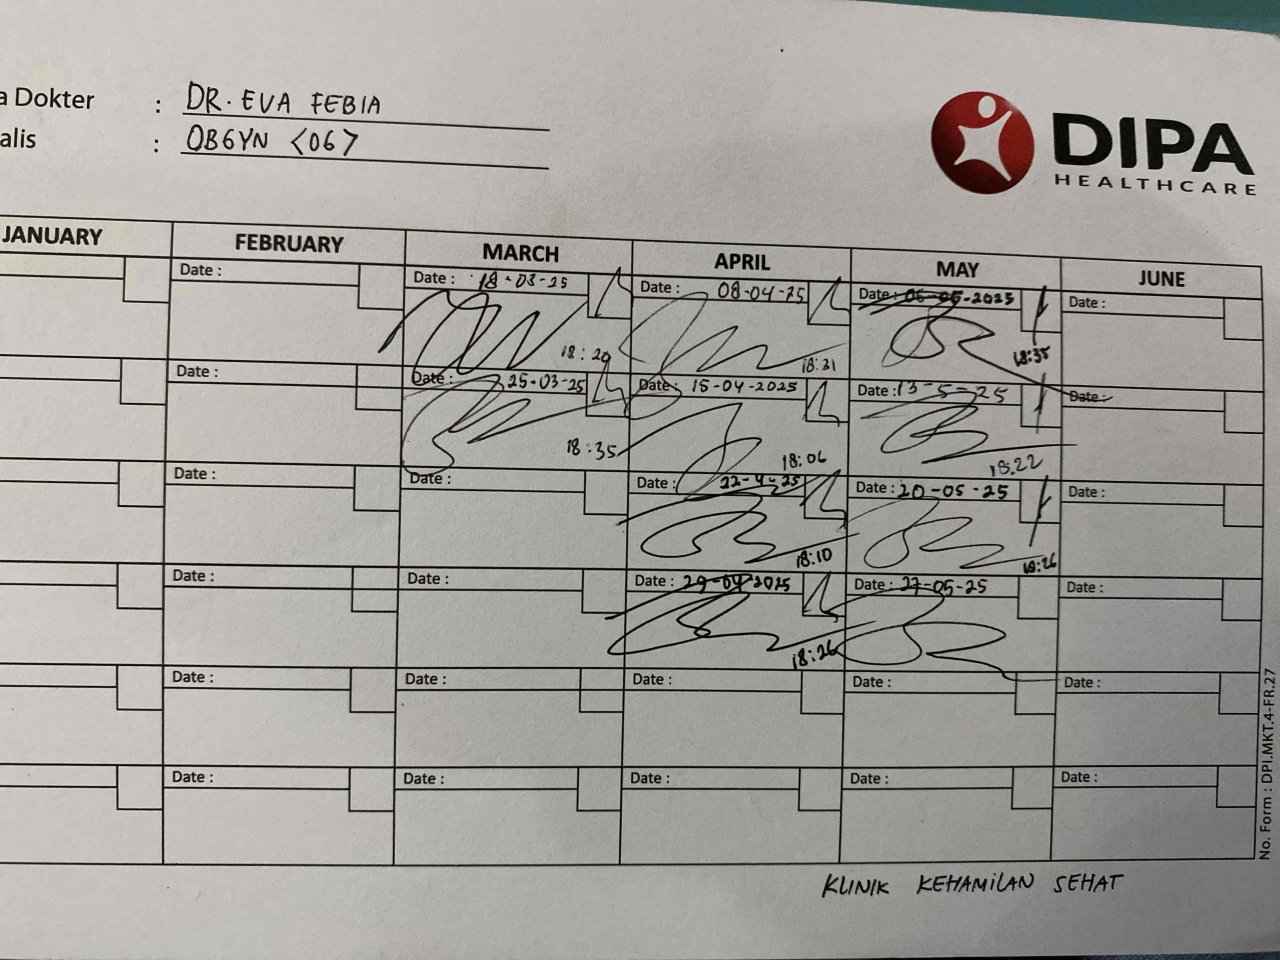 a Dokter : DR. EVA FEBIA
alis : OBGYN <06>
DIPA
HEALTHCARE
JANUARY FEBRUARY MARCH APRIL MAY JUNE
Date : Date : 18-03-25 Date : 08-04-25 Date : 06-05-2025 Date :
18:20 18:31 18:35
Date : Date : 25-03-25 Date : 15-04-2025 Date : 13-5-25 Date :
18:35 18:06 18:22
Date : Date : Date : 22-4-25 Date : 20-05-25 Date :
18:10 18:26
Date : Date : Date : 29-04-2025 Date : 27-05-25 Date :
18:26
Date : Date : Date : Date : Date :
Date : Date : Date : Date : Date :
No. Form : DPI.MKT.4-FR.27
KLINIK KEHAMILAN SEHAT